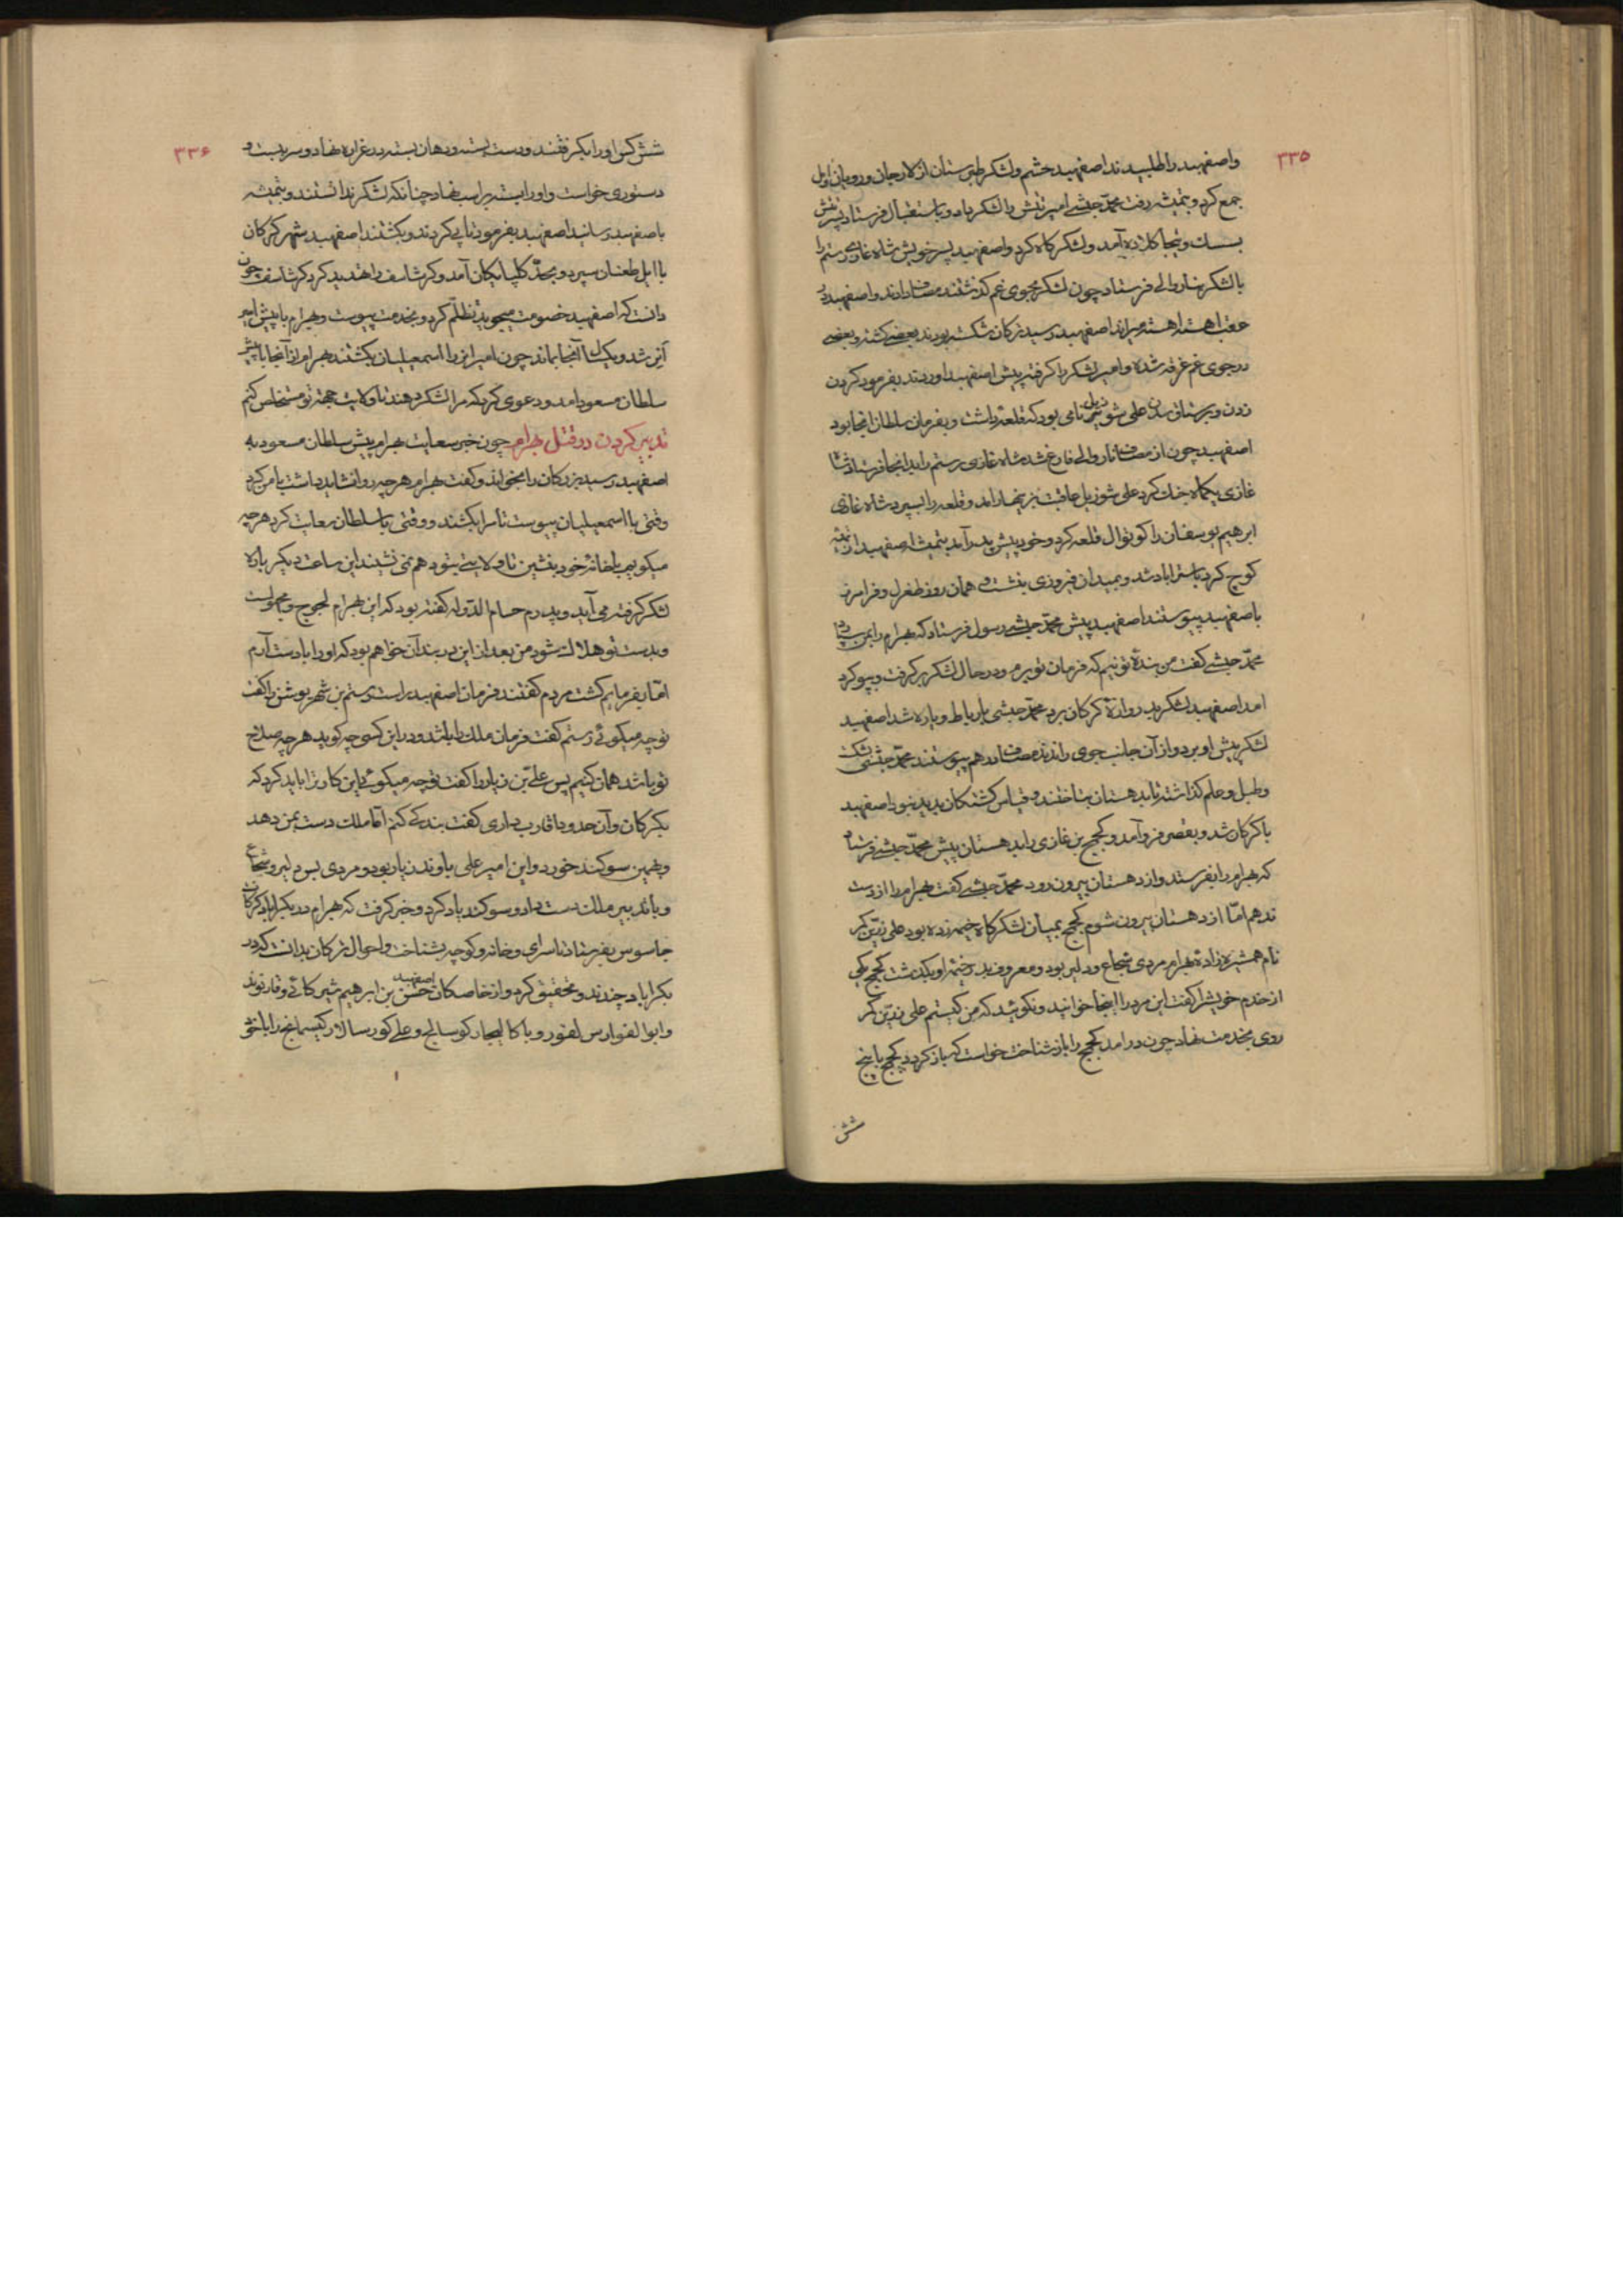 ۳۳۵
واصفهبد را طلبیدند اصفهبد حشم ولشکر طبرستان از لارجان ورویان اول
جمع کرد وبتمیشه رفت محمّد حبشی امیر تتش را لشکر داد وباستقبال فرستاد
وپنجا کلاده آمد ولشکرگاه کرد واصفهبد پسر خویش شاه غازی رستم را
با لشکر بناروالی فرستاد چون لشکر بجوی غم کذشتند مصاف دادند واصفهبد در
عقب اهسته اهسته میراند اصفهبد رسید ترکان شکسته بودند بعضی کشته وبعضی
در جوی غم غرقه شده وامیر لشکر را کرفته پیش اصفهبد اوردند بفرمود کردن
زدن وبرستاق علی شوزیل نامی بود که قلعه داشت وبفرمان سلطان انجا بود
اصفهبد چون از مصاف ناروالی فارغ شد شاه غازی رستم را بدانجا فرستاد شاه
غازی یکماه جنک کرد علی شوزیل عاقبت بزنهار امد وقلعه را بسپرد شاه غازی
ابرهیم یوسفان را کوتوال قلعه کرد وخود پیش پدر آمد بتمیشه اصفهبد از تمیشه
کوچ کرد باستراباد شد وبمیدان فیروزی بنشست همان روز طغرل وفرامرز
باصفهبد پیوستند اصفهبد پیش محمّد حبشی رسول فرستاد که بهرام را بمن سپار
محمّد حبشی کفت من بندهٔ تو نیم که فرمان تو برم ودر حال لشکر بر کرفت وبیو کرد
امد اصفهبد لشکر بدروازهٔ کرکان برد محمّد حبشی با رباط وباره شد اصفهبد
لشکر پیش او برد واز آن جانب جوی راندند مصاف در هم پیوستند محمّد حبشی شکست
وطبل وعلم کذاشته تا بدهستان بتاختند وقیاس کشتکان پدید نبود اصفهبد
با کرکان شد وبقصر فرو آمد وکجج بن غازی را بدهستان پیش محمّد حبشی فرستاد
که بهرام را بفرستد واز دهستان بیرون رود محمّد حبشی کفت بهرام را از دست
ندهم امّا از دهستان بیرون شوم کجج بمیان لشکرگاه خیمه زده بود علی زرّین کمر
نام همشیره زادهٔ بهرام مردی شجاع ودلیر بود ومعروف بدر خیمه او بکذشت کجج یکی
از خدم خویش را کفت این مرد را اینجا خوانید ونکوئید که من کیستم علی زرّین کمر
روی بخدمت نهاد چون در امد کجج را باز شناخت خواست که باز کردد کجج با پنج
شش
۳۳۶
شش کس او را بکرفتند ودست بسته ودهان بسته در غراره نهاد وسر ببست و
دستوری خواست واو را بسته بر اسب نهاد چنانکه لشکر ندانستند وبتمیشه
باصفهبد رسانید اصفهبد بفرمود تا پی کردند وبکشتند اصفهبد شهر کرکان
با ایل طغنان سپرد وبحدّ کلپایکان آمد وکرشاسف را تهدید کرد کرشاسف چون
دانست که اصفهبد خصومت میجوید تظلّم کرد وبخدمت پیوست وبهرام با پیش امیر
انر شد ویکسال آنجا بماند چون امیر انر را اسمعیلیان بکشتند بهرام از آنجا با پیش
سلطان مسعود امد ودعوی کرد که مرا لشکر دهند تا ولایت بجهة تو مستخلص کنم
تدبیر کردن در قتل بهرام چون خبر سعایت بهرام پیش سلطان مسعود به
اصفهبد رسید بزرکان را بخواند وکفت بهرام هر چه روا نشاید داشت با من کرد
وقتی با اسمعیلیان پیوست تا مرا بکشند ووقتی با سلطان سعایت کرد هر چه
میکویم با خانهٔ خود بنشین تا ولایتی بتو دهم نمی نشیند این ساعت دیکر باره
لشکر کرفته می آید وپدرم حسام الدّوله کفته بود که این بهرام لجوج وعجولست
وبدست تو هلاک شود من بعد از این در بند آن خواهم بود که او را با دست آرم
امّا بفرمایم کشت مردم کفتند فرمان اصفهبد راست رستم بن شهریوشن را کفت
تو چه میکوئی رستم کفت فرمان ملک را باشد ودر این کسی چه کوید هر چه صلاح
تو باشد همان کنیم پس علی بن زیار را کفت تو چه میکوئی این کار ترا باید کرد که
بکرکان وآن حدود اقارب داری کفت بندکی کنم امّا ملک دست بمن دهد
وبهمین سوکند خورد واین امیر علی باوند زیار بود ومردی بس دلیر وشجاع
وبا تدبیر ملک دست داد وسوکند یاد کرد وخبر کرفت که بهرام در بکراباد کرکان
جاسوس بفرستاد تا سرای وخانه وکوچه بشناخت واحوال ترکان بدانست که در
بکراباد چندند وتحقیق کرد واز خاصکان اصفهبد حسن بن ابرهیم شیرکائی وقارتوند
وابو الفوارس لفور وبا کالیجار کوسالج وعلی کور سالار کیسمانج را با خود